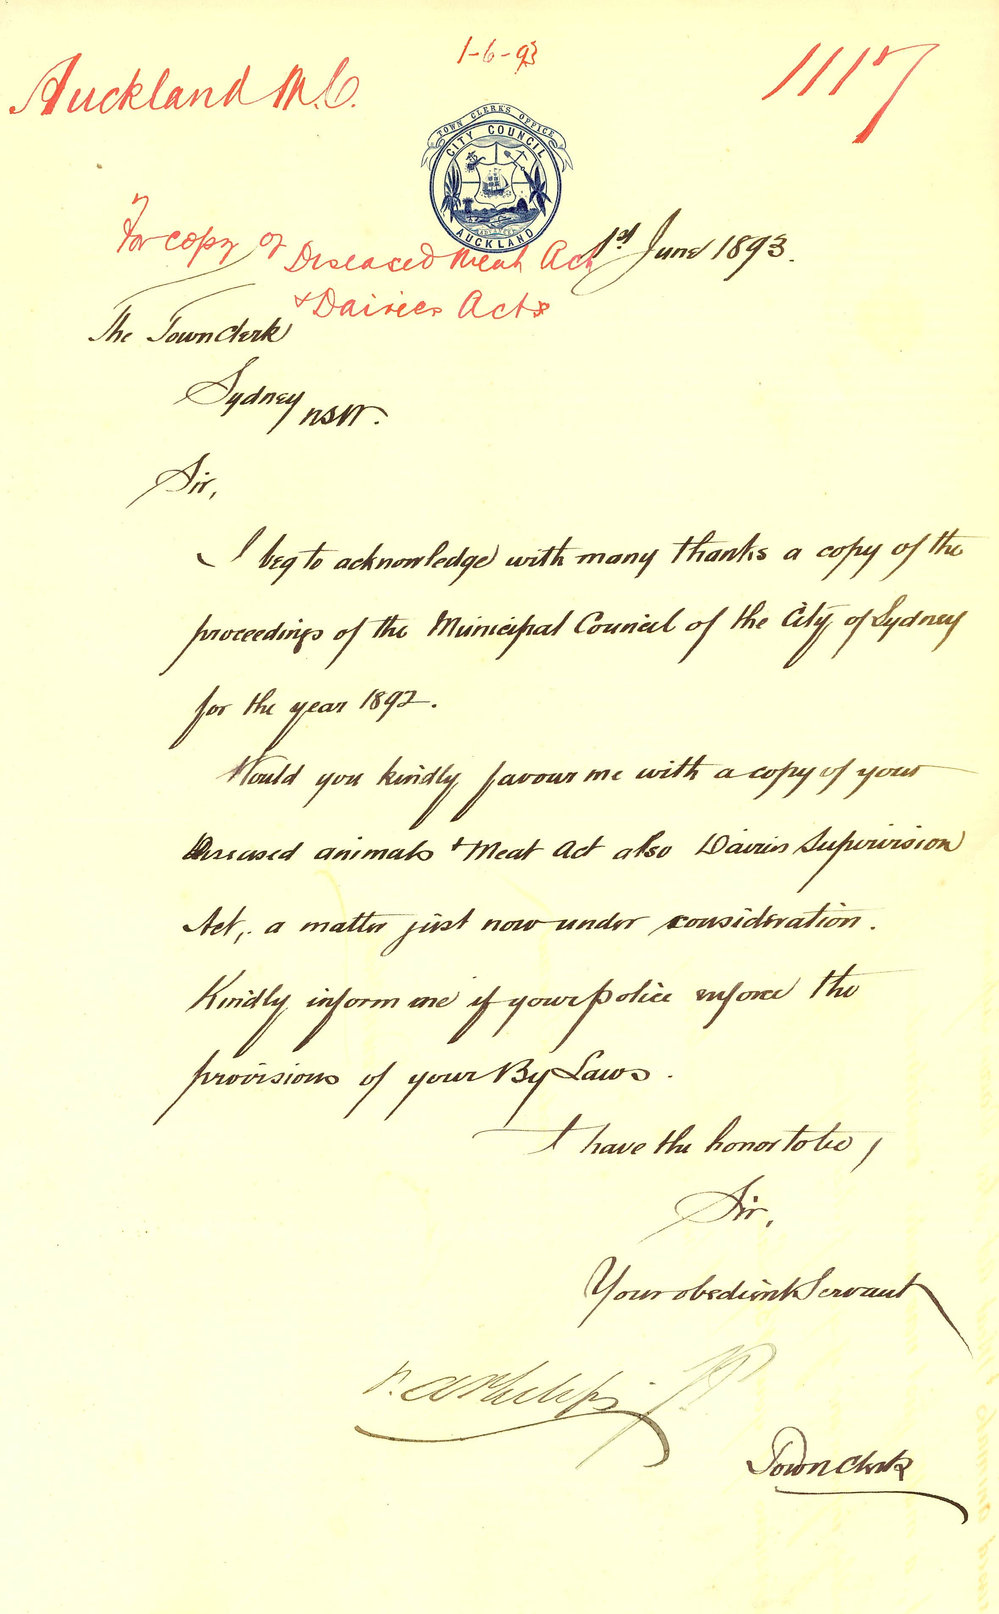 1-6-93
Auckland M.C.
1117
TOWN CLERKS OFFICE
CITY COUNCIL
AUCKLAND
For copy of Diseased Meat Act
& Dairies Acts
1st June 1893.
The Town Clerk
Sydney NSW.
Sir,
I beg to acknowledge with many thanks a copy of the
proceedings of the Municipal Council of the City of Sydney
for the year 1892.
Would you kindly favour me with a copy of your
Diseased animals & Meat Act also Dairies Supervision
Act, a matter just now under consideration.
Kindly inform me if your police enforce the
provisions of your By Laws.
I have the honor to be,
Sir,
Your obedient Servant
P. A. Philips
Town Clerk